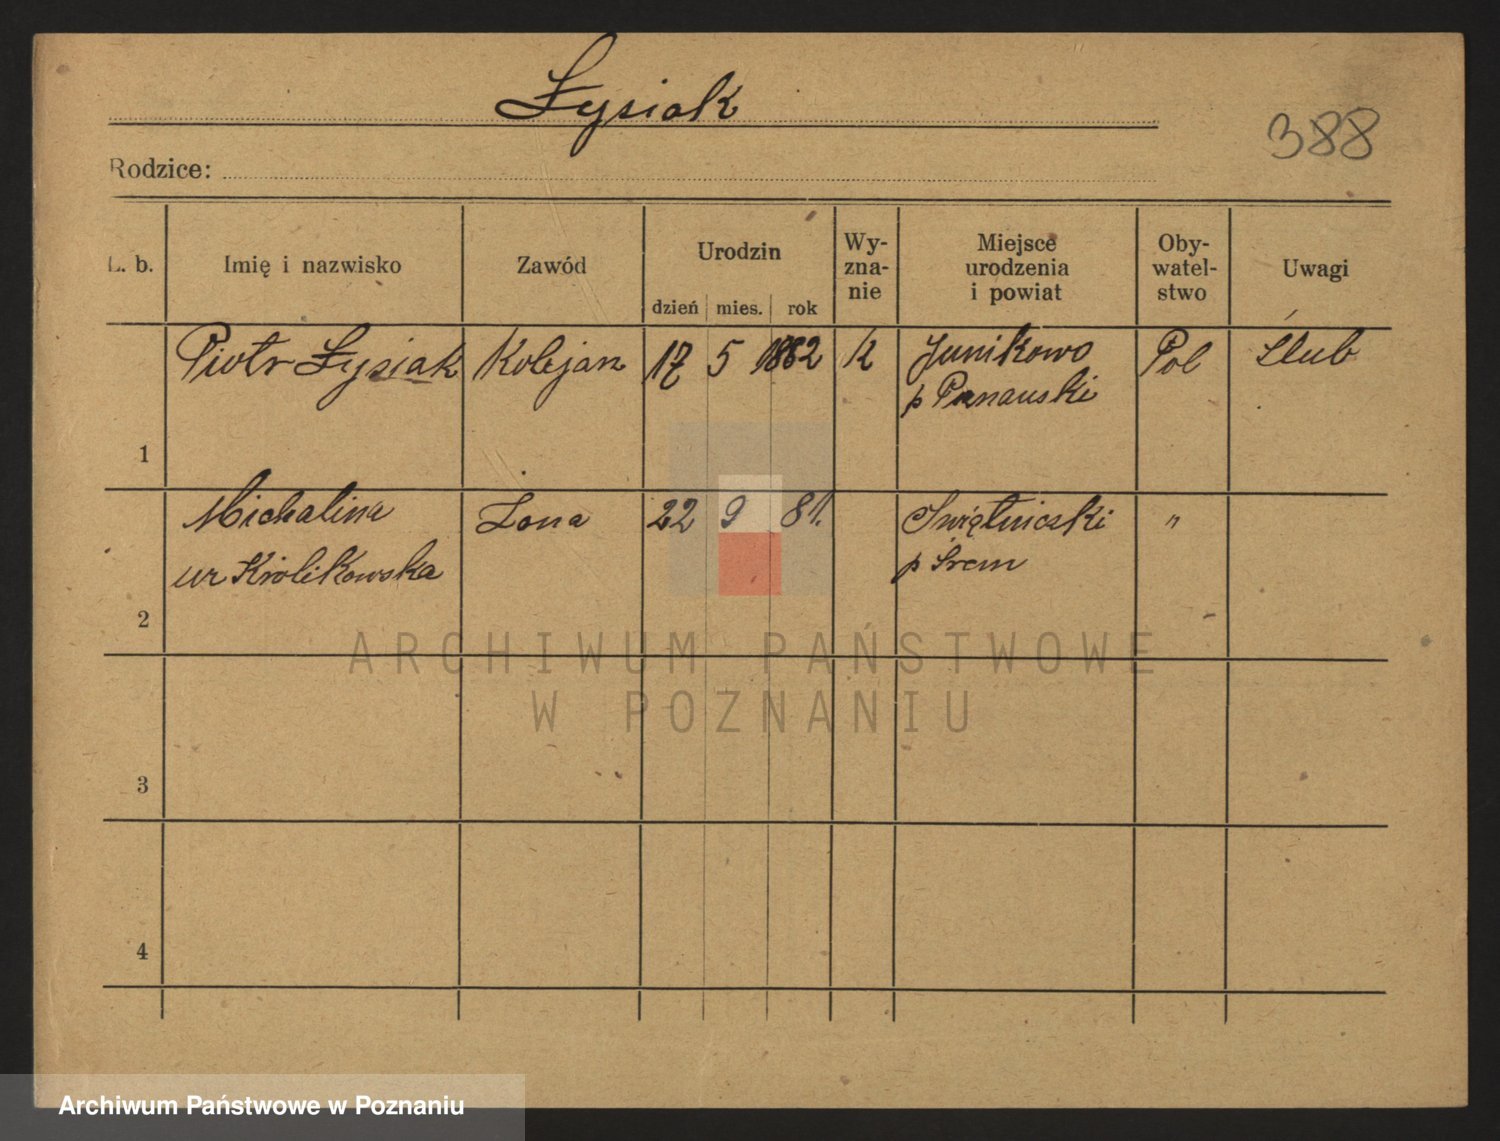 Łysiak
388
Rodzice:
L. b.
Imię i nazwisko
Zawód
Urodzin
dzień mies. rok
Wy-
zna-
nie
Miejsce
urodzenia
i powiat
Oby-
watel-
stwo
Uwagi
1 Piotr Łysiak Kolejarz 17 5 1882 K Junikowo Pol Ślub
p Poznański
2 Michalina Żona 22 9 81. "
ur Królikowska p Śrem
3
4
ARCHIWUM PAŃSTWOWE
W POZNANIU
Archiwum Państwowe w Poznaniu